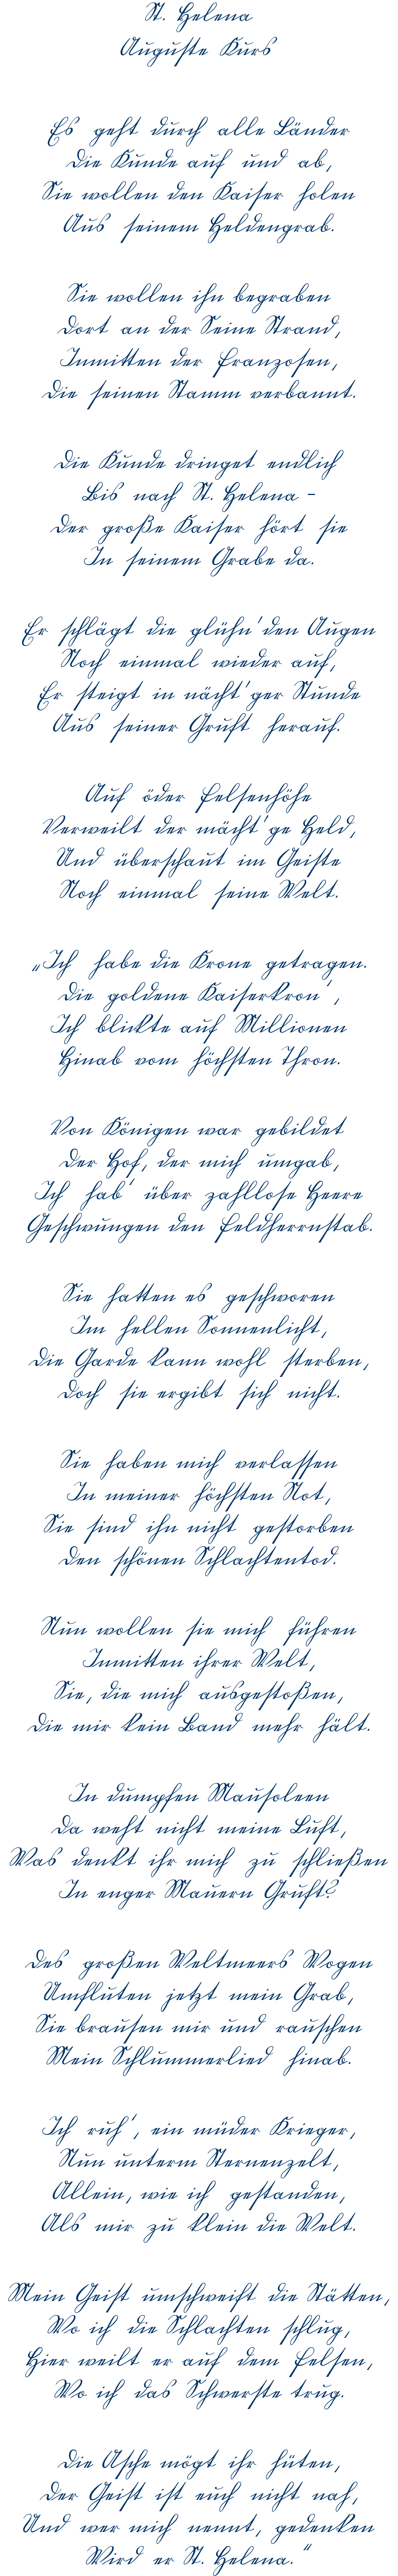 St. Helena
Auguste Kurs
Es geht durch alle Länder
Die Kunde auf und ab,
Sie wollen den Kaiser holen
Aus seinem Heldengrab.
Sie wollen ihn begraben
Dort an der Seine Strand,
Inmitten der Franzosen,
Die seinen Stamm verbannt.
Die Kunde dringet endlich
Bis nach St. Helena –
Der große Kaiser hört sie
In seinem Grabe da.
Er schlägt die glüh'nden Augen
Noch einmal wieder auf,
Er steigt in nächt'ger Stunde
Aus seiner Gruft herauf.
Auf öder Felsenhöhe
Verweilt der mächt'ge Held,
Und überschaut im Geiste
Noch einmal seine Welt.
„Ich habe die Krone getragen.
Die goldene Kaiserkron',
Ich blickte auf Millionen
Hinab vom höchsten Thron.
Von Königen war gebildet
Der Hof, der mich umgab,
Ich hab' über zahllose Heere
Geschwungen den Feldherrnstab.
Sie hatten es geschworen
Im hellen Sonnenlicht,
Die Garde kann wohl sterben,
Doch sie ergibt sich nicht.
Sie haben mich verlassen
In meiner höchsten Not,
Sie sind ihn nicht gestorben
Den schönen Schlachtentod.
Nun wollen sie mich führen
Inmitten ihrer Welt,
Sie, die mich ausgestoßen,
Die mir kein Band mehr hält.
In dumpfen Mausoleen
Da weht nicht meine Luft,
Was denkt ihr mich zu schließen
In enger Mauern Gruft?
Des großen Weltmeers Wogen
Umfluten jetzt mein Grab,
Sie brausen mir und rauschen
Mein Schlummerlied hinab.
Ich ruh', ein müder Krieger,
Nun unterm Sternenzelt,
Allein, wie ich gestanden,
Als mir zu klein die Welt.
Mein Geist umschweift die Stätten,
Wo ich die Schlachten schlug,
Hier weilt er auf dem Felsen,
Wo ich das Schwerste trug.
Die Asche mögt ihr hüten,
Der Geist ist euch nicht nah,
Und wer mich nennt, gedenken
Wird er St. Helena."